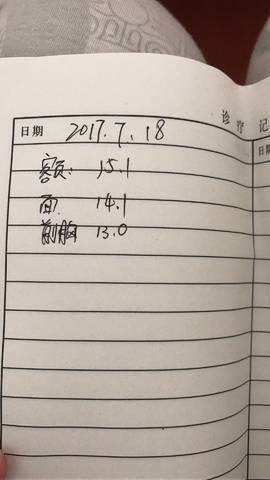 诊疗记
日期 2017.7.18
日期
额: 15.1
面 14.1
前胸 13.0